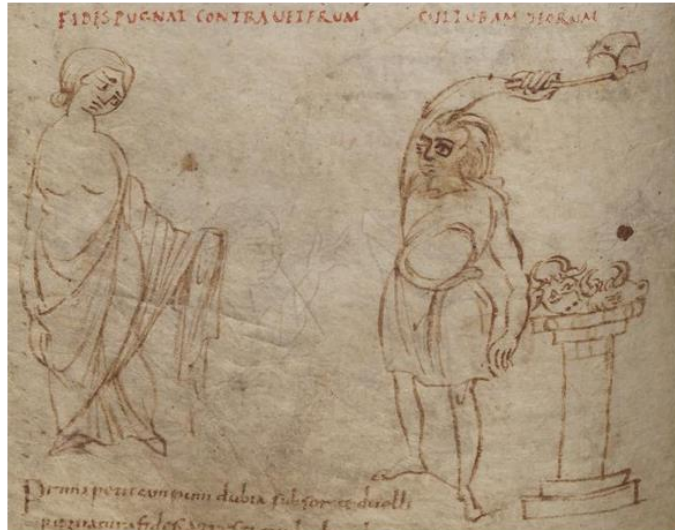 FIDES PUGNAT CONTRA UETERUM CULTURAM DEORUM
Prima petit campum dubia sub sorte duelli
pugnatura fides